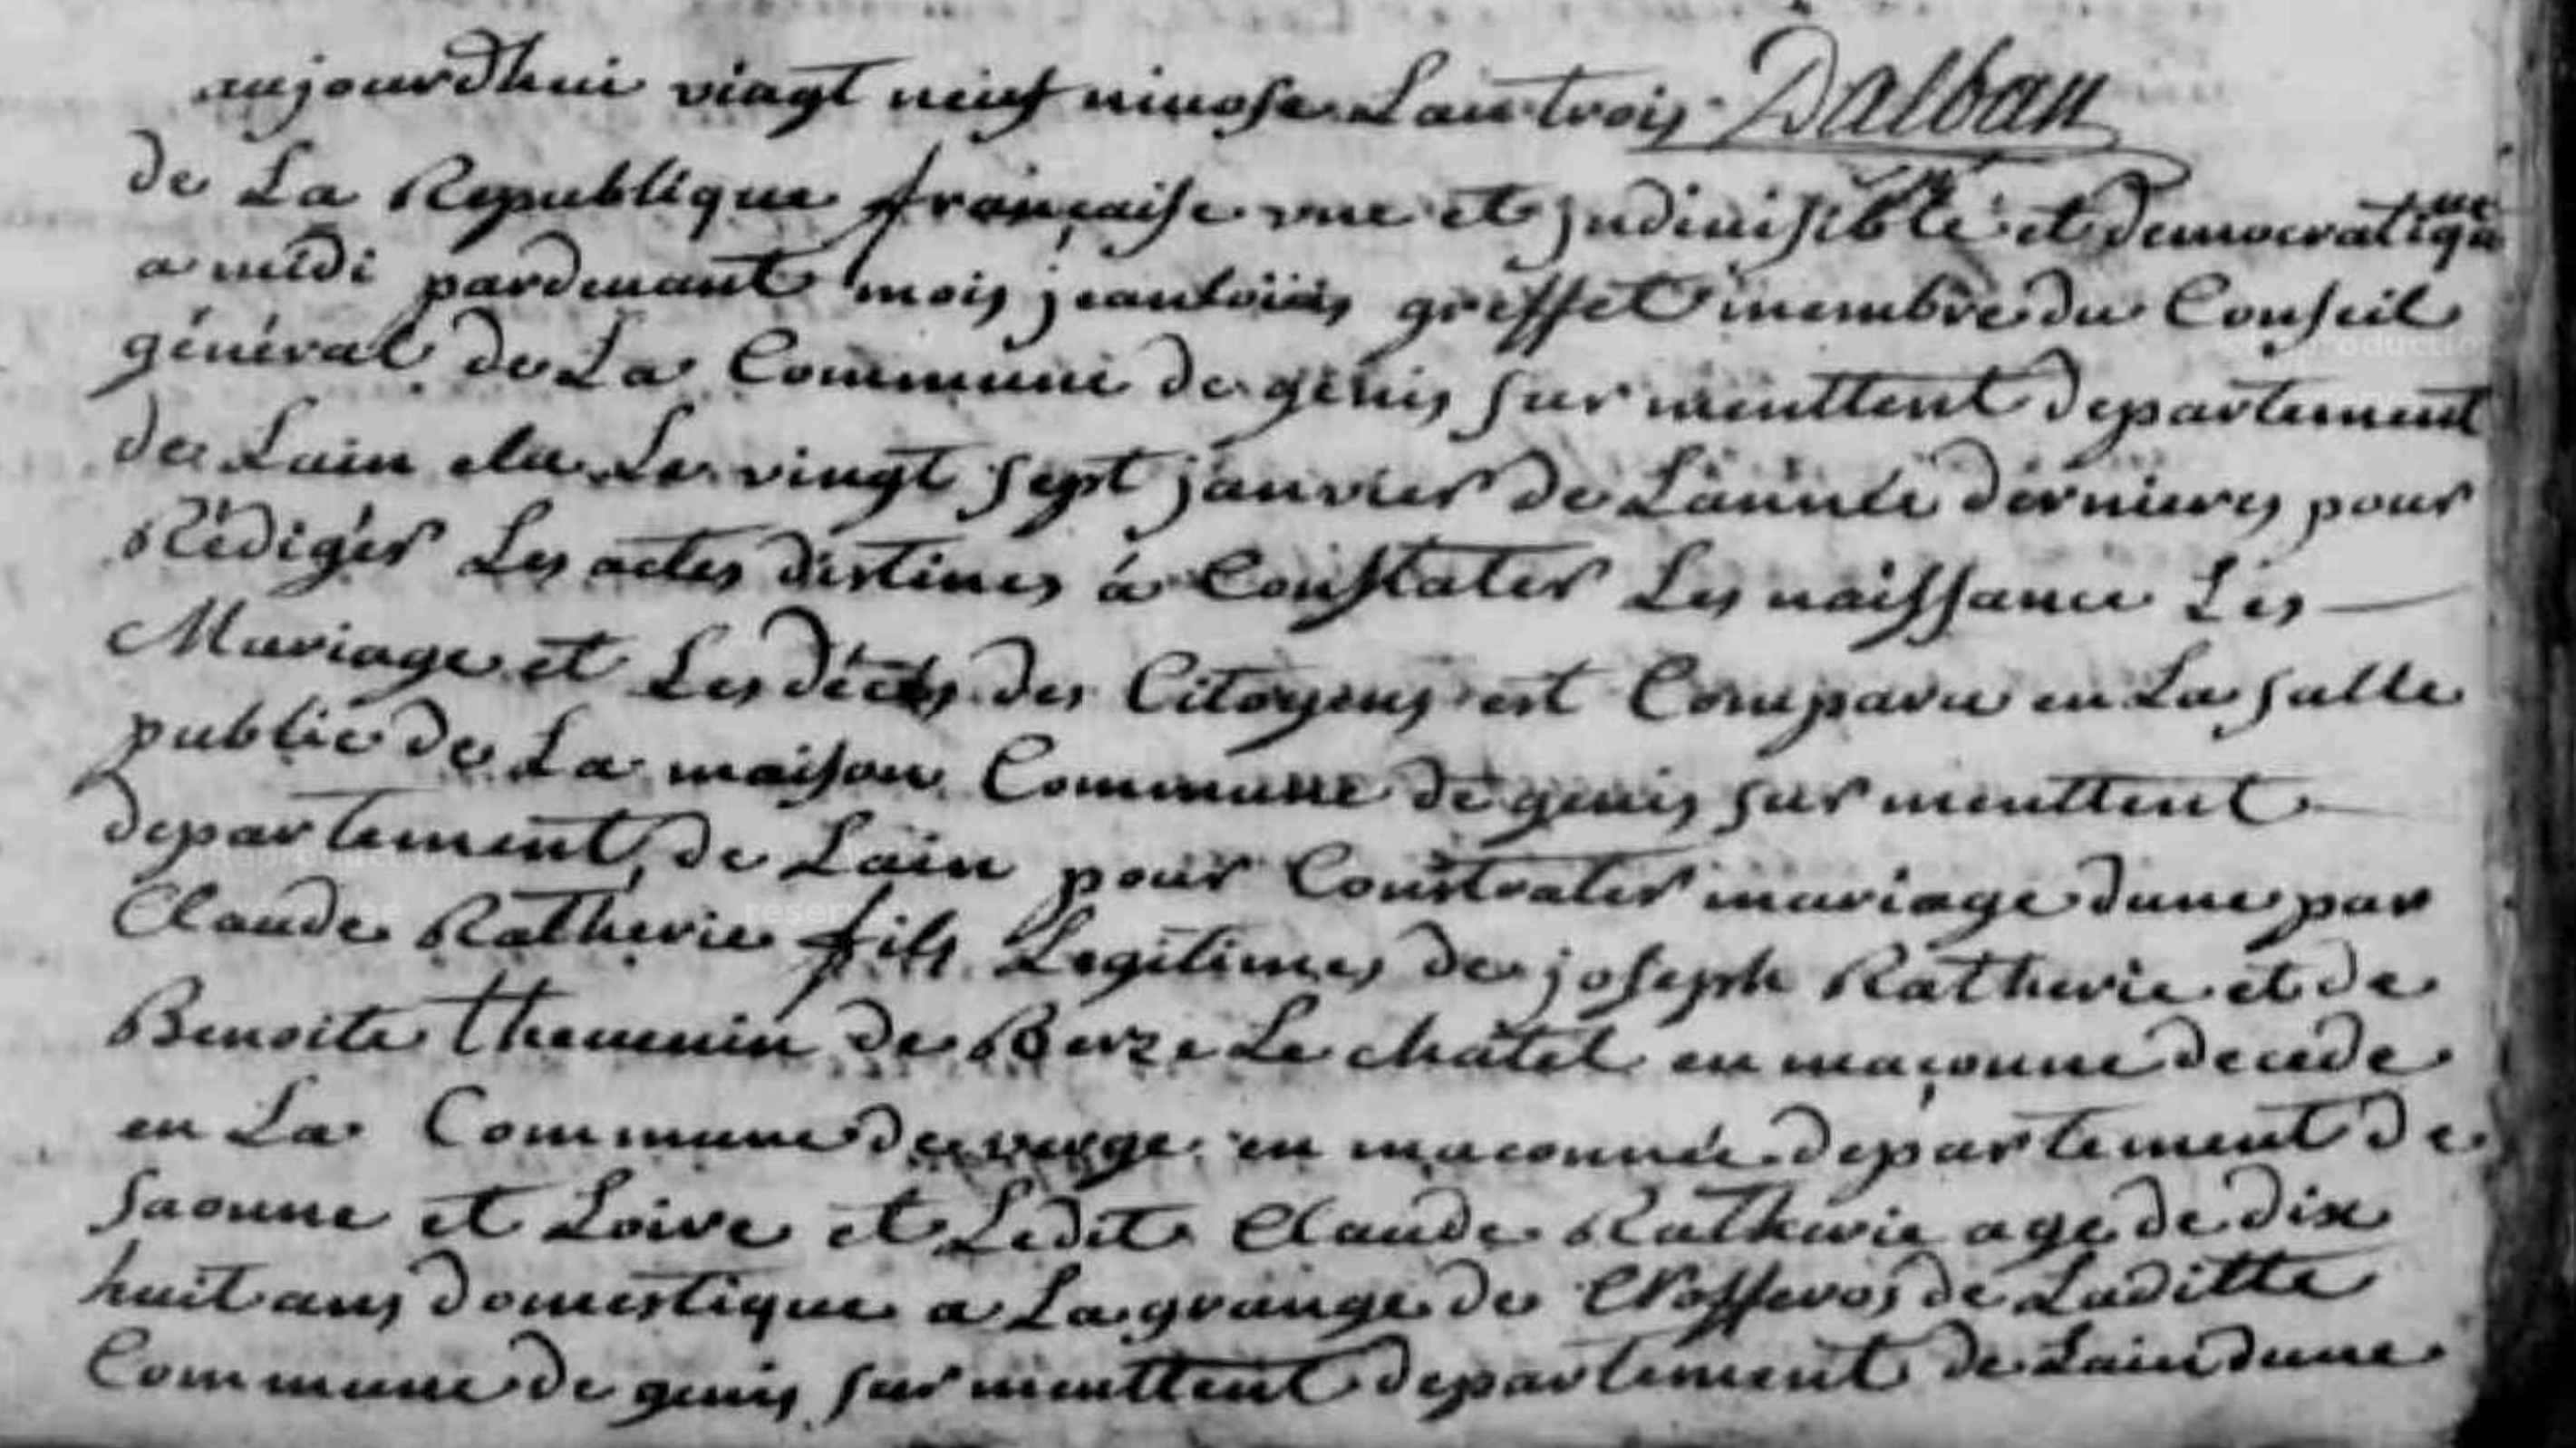 aujourdhui vingt neuf nivose Lan trois Dalban
de La Republique française une et jndivisible et democratique
a midi pardevant mois jean loüis greffet membre du Conseil
général de La Commune de genis sur menttent departement
de Lain elu Le vingt sept janvier de Lannée dernieres pour
Rédiger Les actes destines à Constater Les naissance Les
Mariage et Les décés des Citoyens est Comparu en La salle
public de La maison Commune de genis sur menttent
departement de Lain pour Constrater mariage dune par
Claude Ratherie fils Legitimes de joseph Ratherie et de
Benoite thevenin de Berze Le châtel en maçonne decede
en La Commune de verge en maconnée departement de
saonne et Loire et Ledit Claude Ratherie age de dix
huit ans domestique a La grange de de Laditte
Commune de genis sur menttent departement de Lain dune